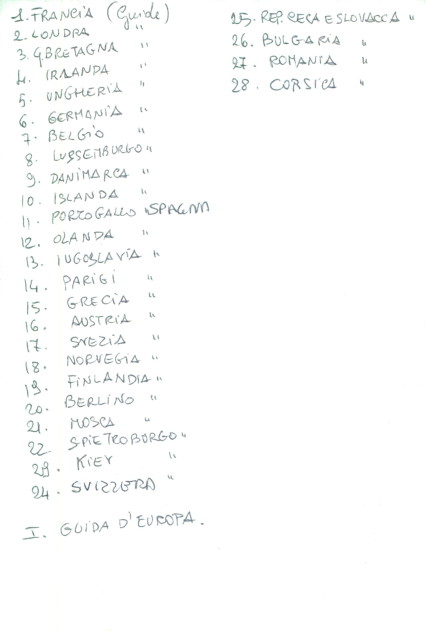 1. FRANCIA (Guide)
2. LONDRA "
3. GBRETAGNA "
4. IRLANDA "
5. UNGHERIA "
6. GERMANIA "
7. BELGIO "
8. LUSSEMBURGO "
9. DANIMARCA "
10. ISLANDA "
11. PORTOGALLO "SPAGNA
12. OLANDA "
13. IUGOSLAVIA "
14. PARIGI "
15. GRECIA "
16. AUSTRIA "
17. SVEZIA "
18. NORVEGIA "
19. FINLANDIA "
20. BERLINO "
21. MOSCA "
22. SPIETROBURGO "
23. KIEV "
24. SVIZZERA "
I. GUIDA D'EUROPA.
25. REP. CECA E SLOVACCA "
26. BULGARIA "
27. ROMANIA "
28. CORSICA "